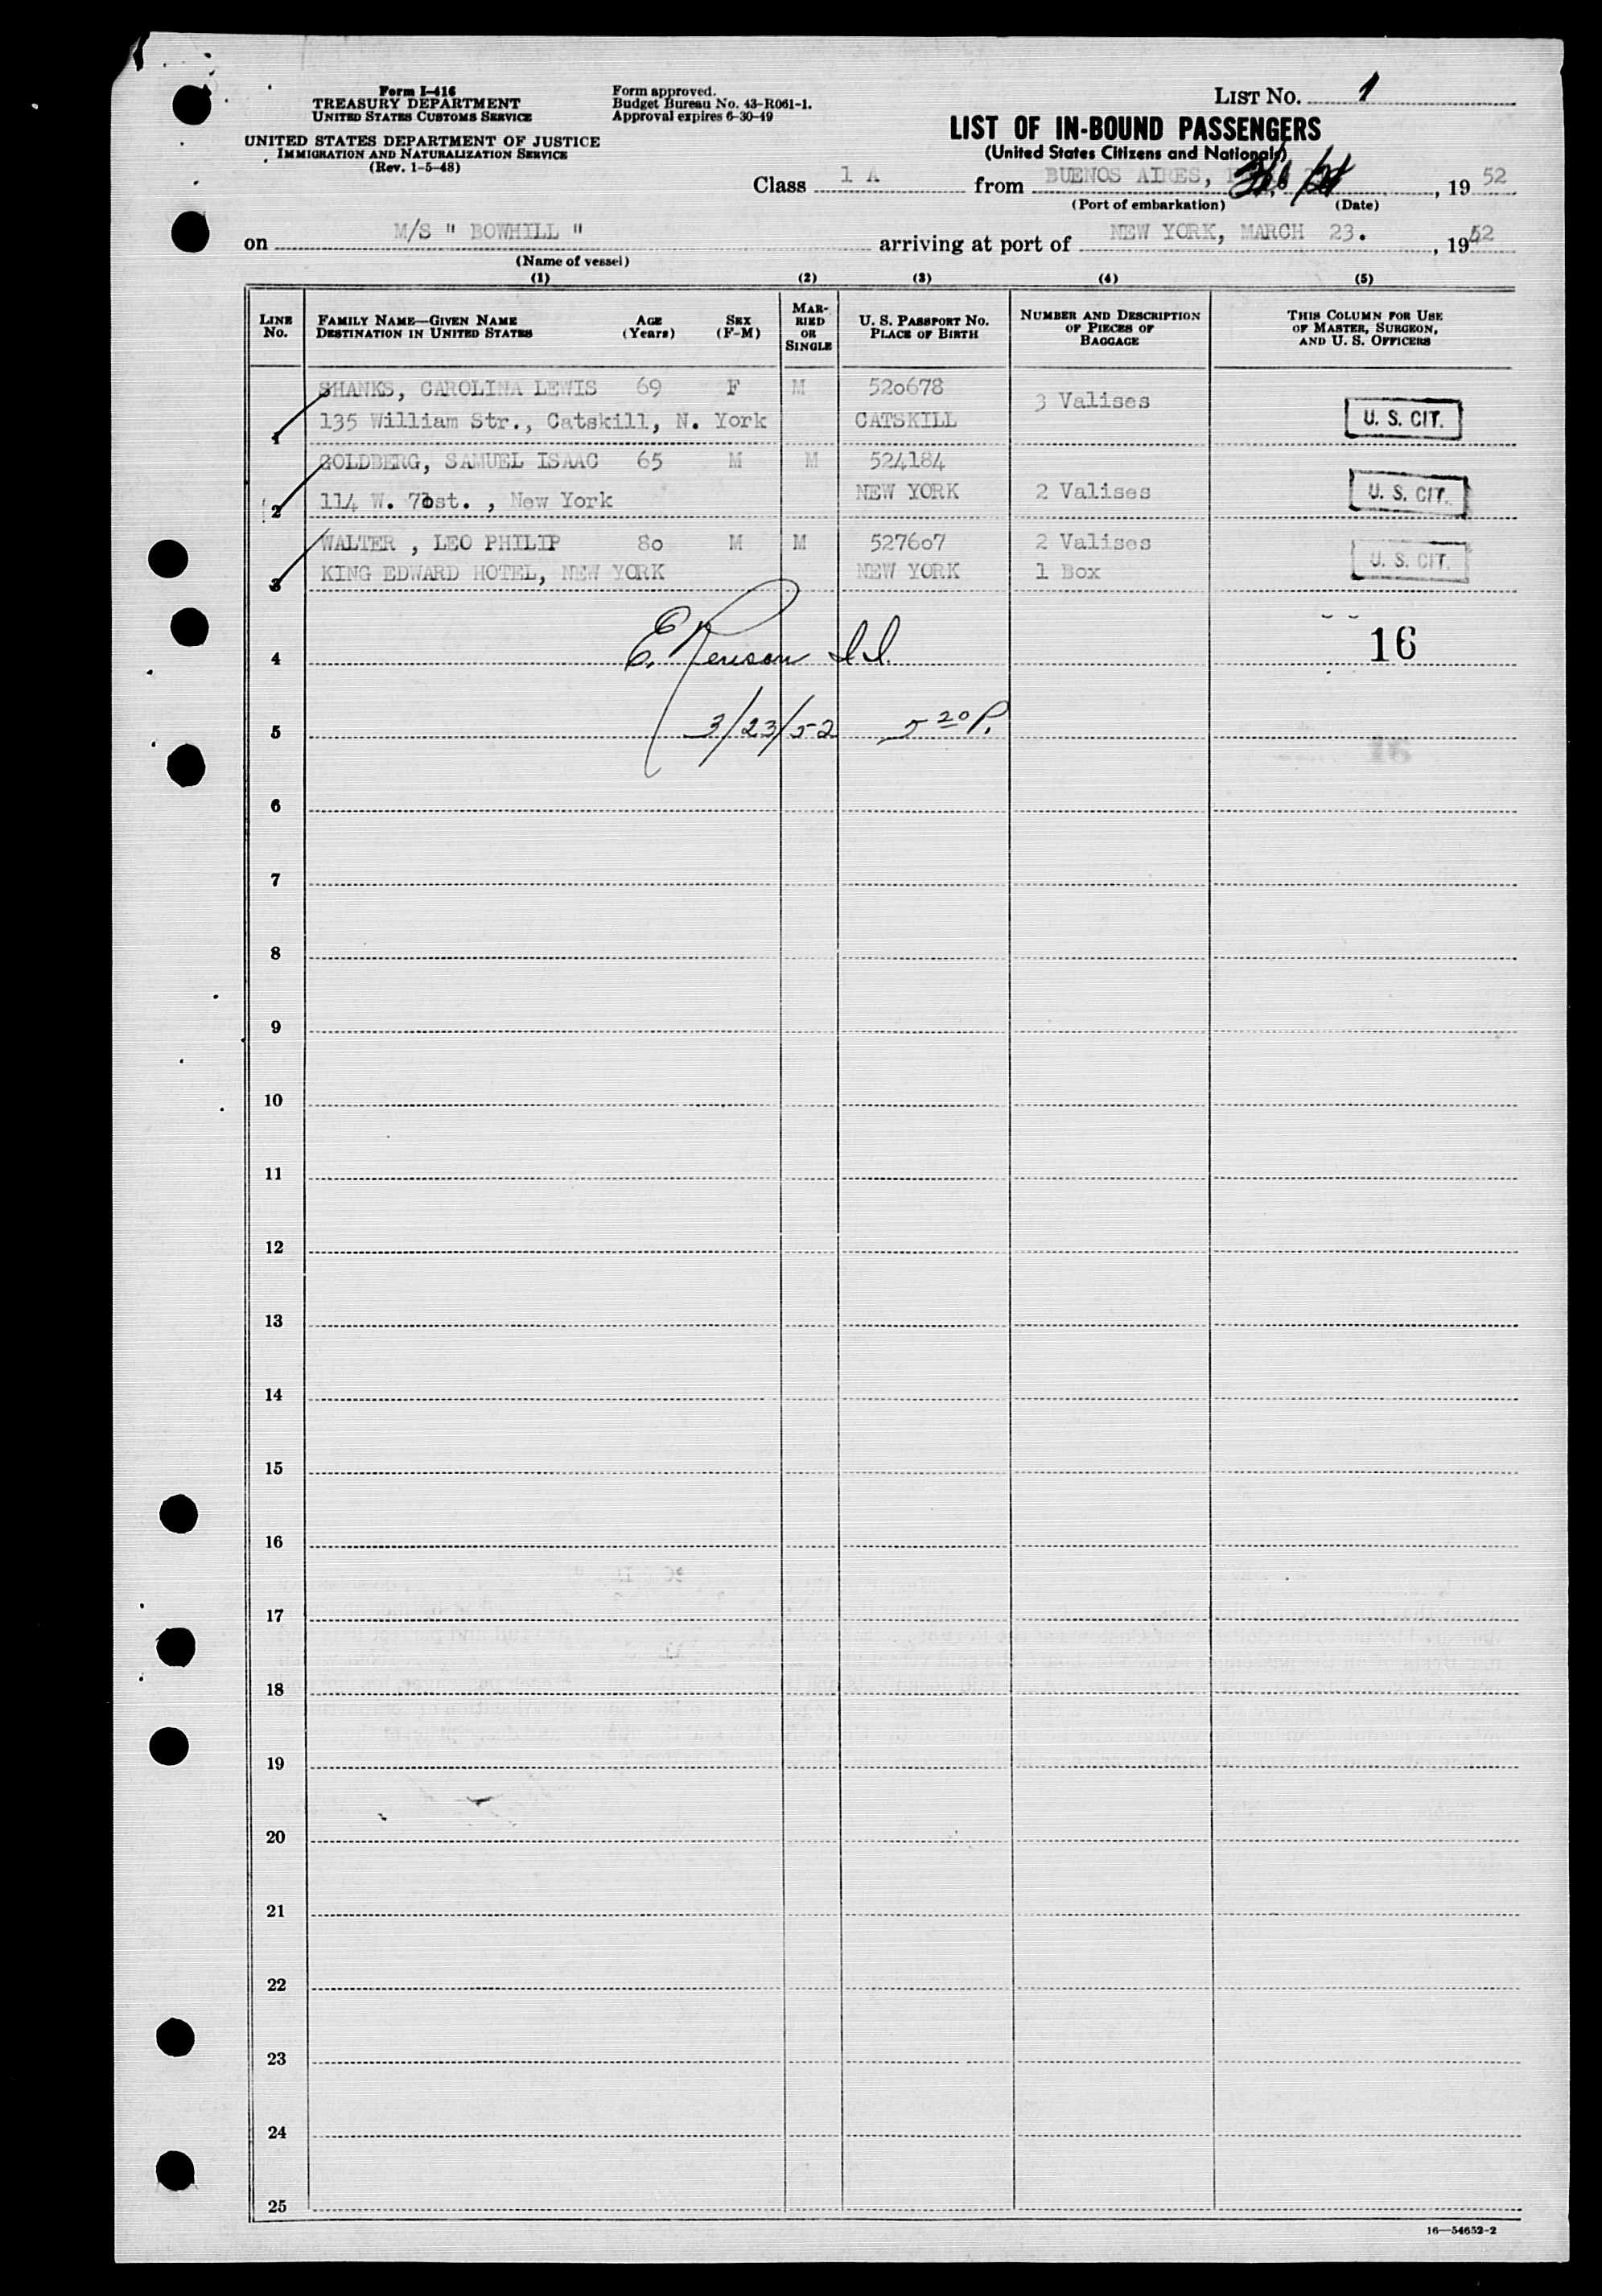 Form I-416
TREASURY DEPARTMENT
UNITED STATES CUSTOMS SERVICE
UNITED STATES DEPARTMENT OF JUSTICE
IMMIGRATION AND NATURALIZATION SERVICE
(Rev. 1-5-48)
Form approved.
Budget Bureau No. 43-R061-1.
Approval expires 6-30-49
LIST NO. 1
LIST OF IN-BOUND PASSENGERS
(United States Citizens and Nationals)
Class 1 A from BUENOS AIRES, Feb , 19 52
(Port of embarkation) (Date)
on M/S " BOWHILL " arriving at port of NEW YORK, MARCH 23. , 1952
(Name of vessel)
(1) (2) (3) (4) (5)
LINE No. FAMILY NAME—GIVEN NAME DESTINATION IN UNITED STATES AGE (Years) SEX (F-M) MARRIED OR SINGLE U. S. PASSPORT NO. PLACE OF BIRTH NUMBER AND DESCRIPTION OF PIECES OF BAGGAGE THIS COLUMN FOR USE OF MASTER, SURGEON, AND U. S. OFFICERS
SHANKS, CAROLINA LEWIS 69 F M 520678 3 Valises
1 135 William Str., Catskill, N. York CATSKILL U. S. CIT.
GOLDBERG, SAMUEL ISAAC 65 M M 524184
2 114 W. st. , New York NEW YORK 2 Valises U. S. CIT.
WALTER , LEO PHILIP 80 M M 527607 2 Valises
3 KING EDWARD HOTEL, NEW YORK NEW YORK 1 Box U. S. CIT.
4 E. 16
5 3/23/52 5 20 P.
6
7
8
9
10
11
12
13
14
15
16
17
18
19
20
21
22
23
24
25
16—54652-2